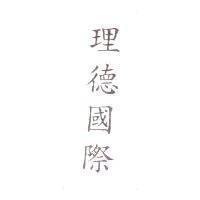 理德國際